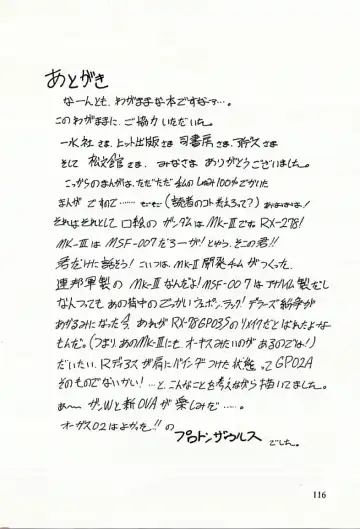 あとがき
なーんとも、わがままな本ですなァ…。
このわがままに、ご協力いただいた。
一水社さま、ヒット出版さま 司書房さま、
そして 松文館さま、みなさま ありがとうございました。
こっからのまんがは、ただただ私のしゅみ100%でかいた
まんが ですので (読者のコト考えろって?) あはははは!
それはそれとして 口絵の ガンダムは MK-IIIでね RX-278!
MK-IIIは MSF-007だろーが! とゆう、そこの君!!
君だけに話そう! こいつは、MK-II 開発チームがつくった、
連邦軍製の MK-IIIなんだよ! MSF-007は アナハイム製をし
なんつっても あの背中の でっかいウェポンラック! デラーズ紛争が
あかるみになった今、あれが RX-78GP03Sのリメイクだとばれたよな
もんだ。(つまり、あのMK-IIIにも、オーキスみたいのが あるのでね!)
だいたい、Rディアスが肩にバインダーつけた状態って GP02A
そのものでないかい! …と、こんなことを考えながら描いてました。
あ〜 ガンWと新OVAが 楽しみだ……。
オーガス02はよかった!! の
プロトンザウルス
でした。
116